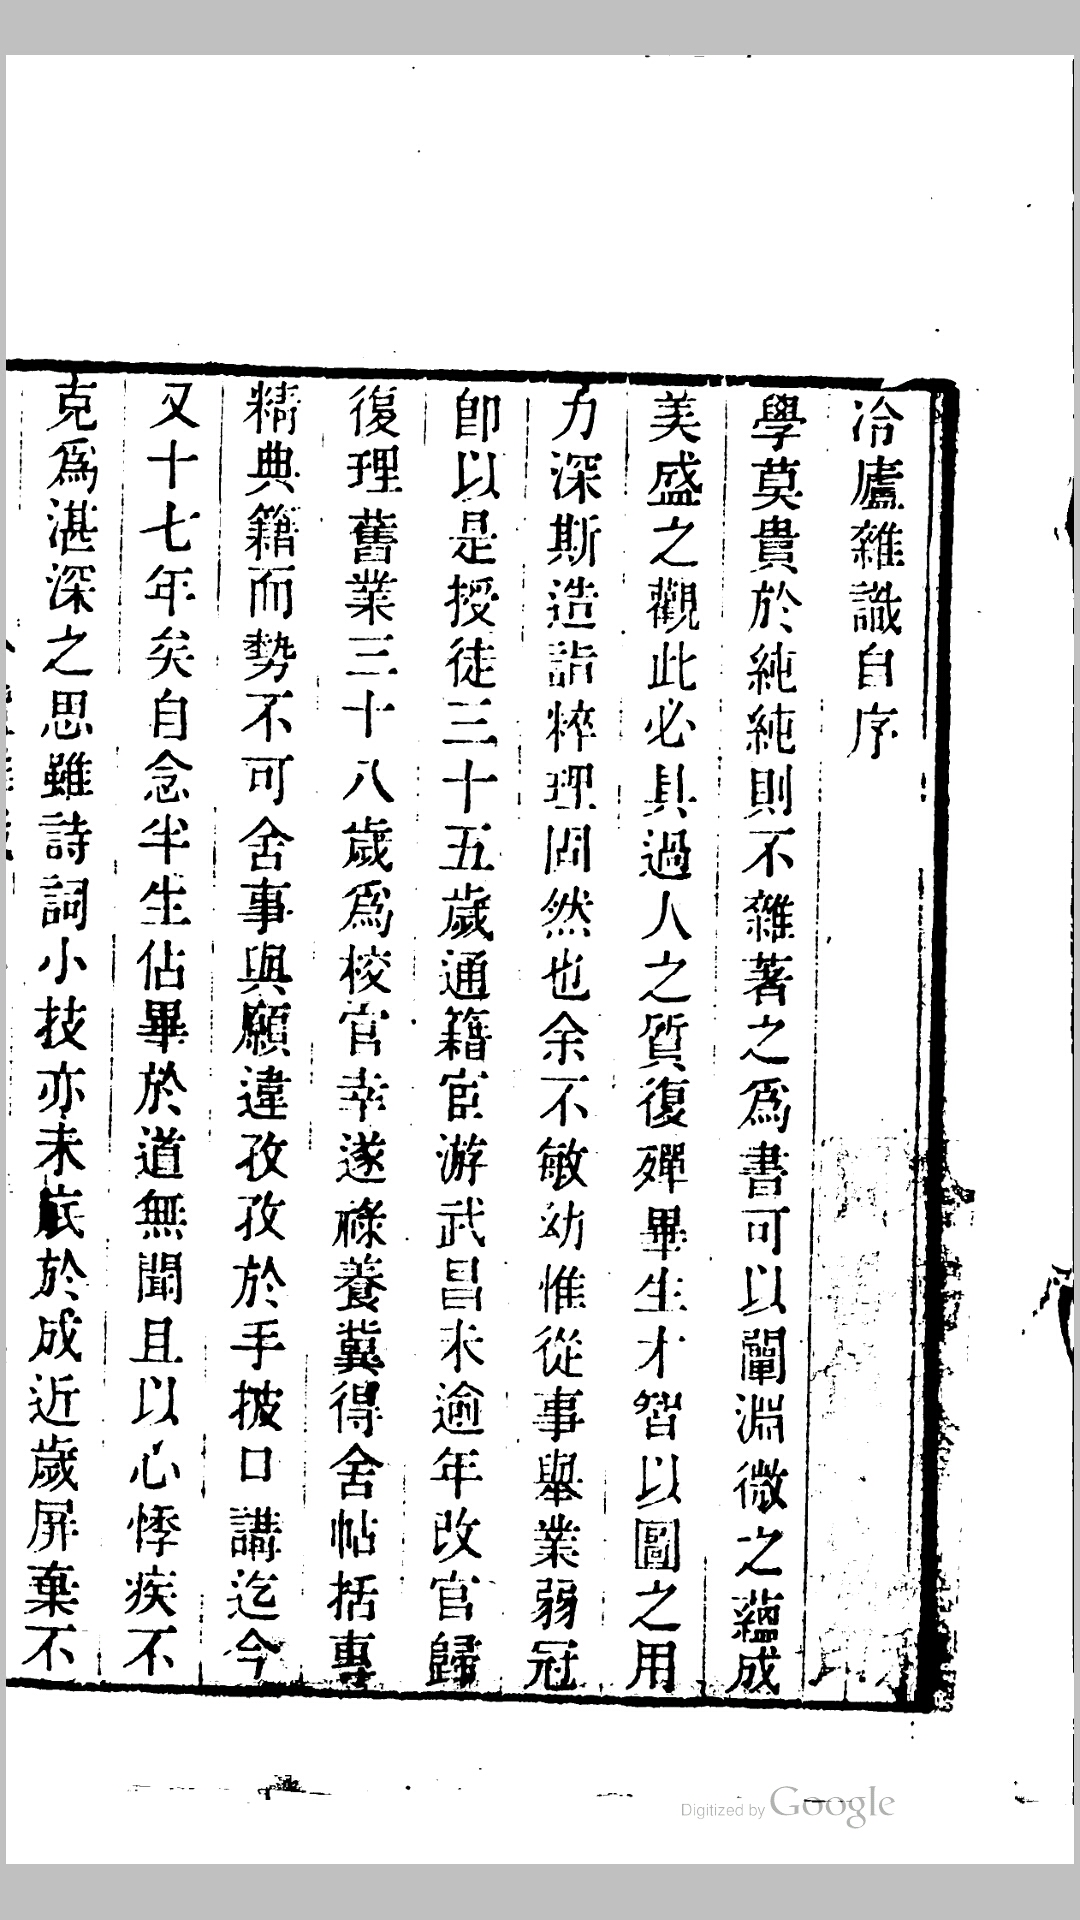 冷廬雜識自序
學莫貴於純純則不雜著之爲書可以闡淵微之蘊成
美盛之觀此必具過人之質復殫畢生才智以圖之用
力深斯造詣粹理固然也余不敏幼惟從事舉業弱冠
卽以是授徒三十五歲通籍宦游武昌未逾年改官歸
復理舊業三十八歲爲校官幸遂祿養冀得舍帖括專
精典籍而勢不可舍事與願違孜孜於手披口講迄今
又十七年矣自念半生佔畢於道無聞且以心悸疾不
克爲湛深之思雖詩詞小技亦未底於成近歲屏棄不
Digitized by Google